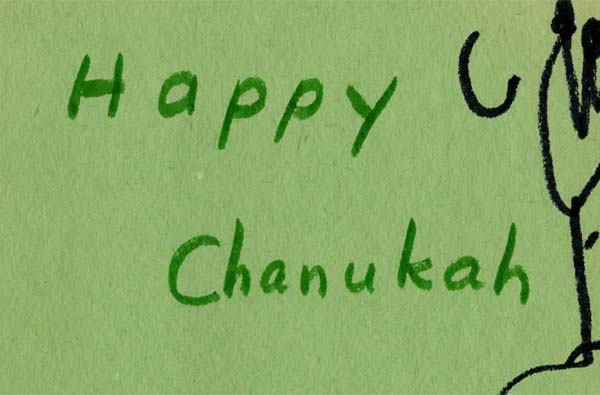 Happy
Chanukah